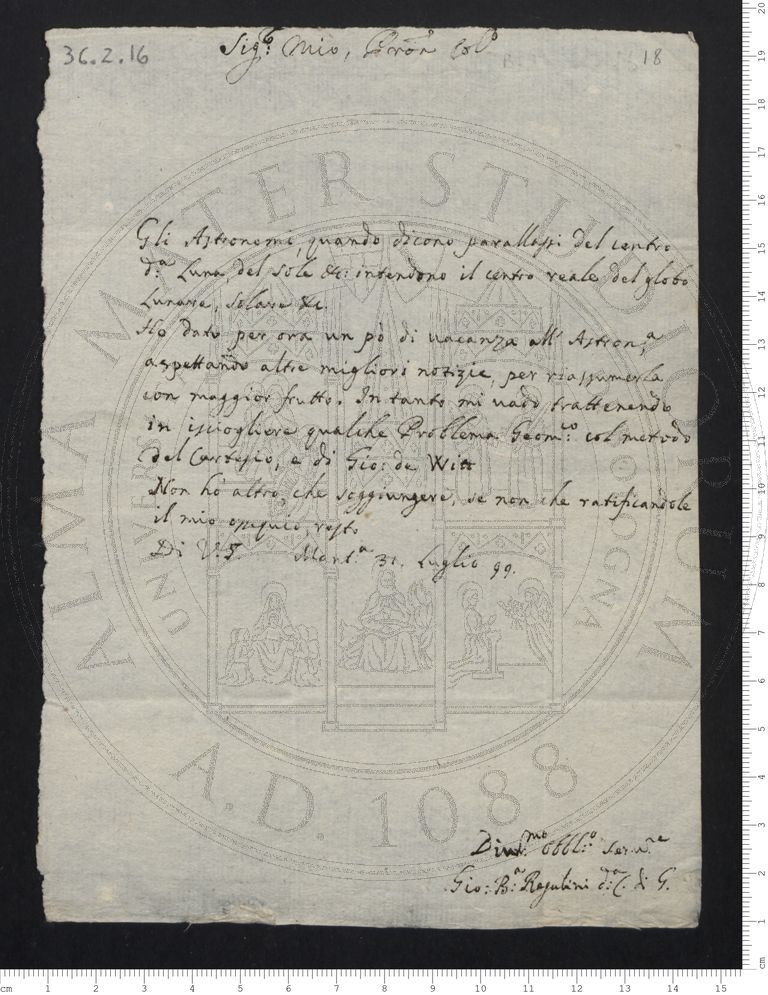 36.2.16
Sig.r Mio, Pron Col.o
18
Gli Astronomi, quando dicono parallassi del centro
d.a Luna, del Sole &c: intendono il centro reale del globo
Lunare, Solare &c.
Ho dato per ora un pò di vacanza all' Astron.a,
aspettando altre migliori notizie, per riassumerla
con maggior frutto. In tanto mi vado trattenendo
in isciogliere qualche Problema Geom.co col metodo
del Cartesio, e di Gio: de Witt
Non hò altro, che soggiungere, se non che ratificandole
il mio ossequio, resto
Di V.S. Mant.a 31. Luglio 99.
Div.mo obbl.o Ser.re
Gio: B.a d.a C. di G.
ALMA MATER STUDIORUM
UNIVERSITÀ BOLOGNA
A.D. 1088